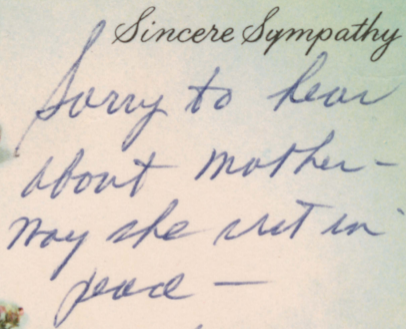 Sincere Sympathy
Sorry to hear
about mother -
may she rest in
peace -